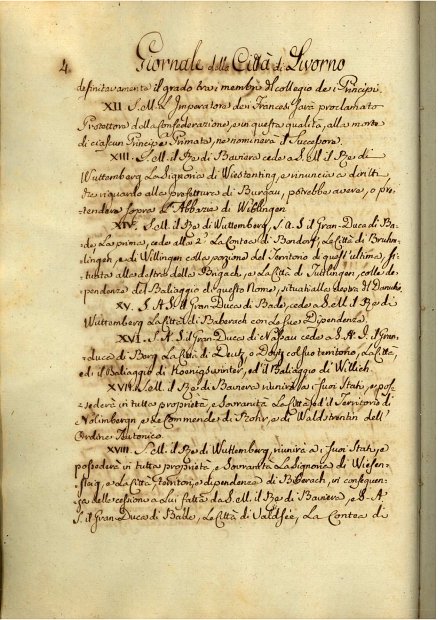 4. Giornale della Città di Livorno
definitavamente il grado tra i membri del collegio dei Principi.
XII. S. M. L'Imperatore dei Francesi sarà proclamato
Protettore della Confederazione, e in questa qualità, alla morte
di ciascun Principe Primate, ne nominerà il Sucessore.
XIII. S. M. il Re di Baviera cede a S. M. il Re di
Wuttemberg La Signoria di Wiestenting, e rinuncia a diritti
che riguardo alla prefettura di Burgau, potrebbe avere, o pre-
tendere sopra L'Abbazie di Wiblingen
XIV. S. M. il Re di Wuttemberg, S. A. S. il Gran-Duca di Ba-
de, La prima, cede alla 2ª La Contea di Bondorf, Le Città di Bruhn-
lingen, e di Willingen colla porzione del Territorio di quest'ultima, si-
tuata alla destra della Brigach, e La Città di Tublingen, colle de-
pendenze del Baliaggio di questo Nome, situati alla destra del Danubio.
XV. S. A. S. il Gran-Duca di Bade, cede a S. M. il Re di
Wuttemberg La Città di Baberach con le sue Dipendenze
XVI. S. A. S. il Gran-Duca di Naßau cede a S. A. I. il Gran-
duca di Berg La Città di Deutz, o Doutz col suo territorio, La Città,
ed il Baliaggio di Koenigswinter, ed il Baliaggio di Willich.
XVII. S. M. il Re di Baviera riunirà a' suoi Stati, e pos-
sederà in tutta proprietà, e Sovranità La Città, ed il Territorio di
Norimbergn e Le Commende di Rohr, e di Waldstrintin dell'
Ordine Teutonico.
XVIII. S. M. il Re di Wuttemberg, riunirà a' suoi Stati, e
possederà in tutta proprietà, e Sovranità La Signoria di Wiesen-
staig, e La Città, Territori, e dipendenze di Biberach, in conseguen-
za delle cessioni a Lui fatta da S. M. il Re di Baviera, e S. A.
S. il Gran-Duca di Bade, Le Città di Valdsée, La Contea di